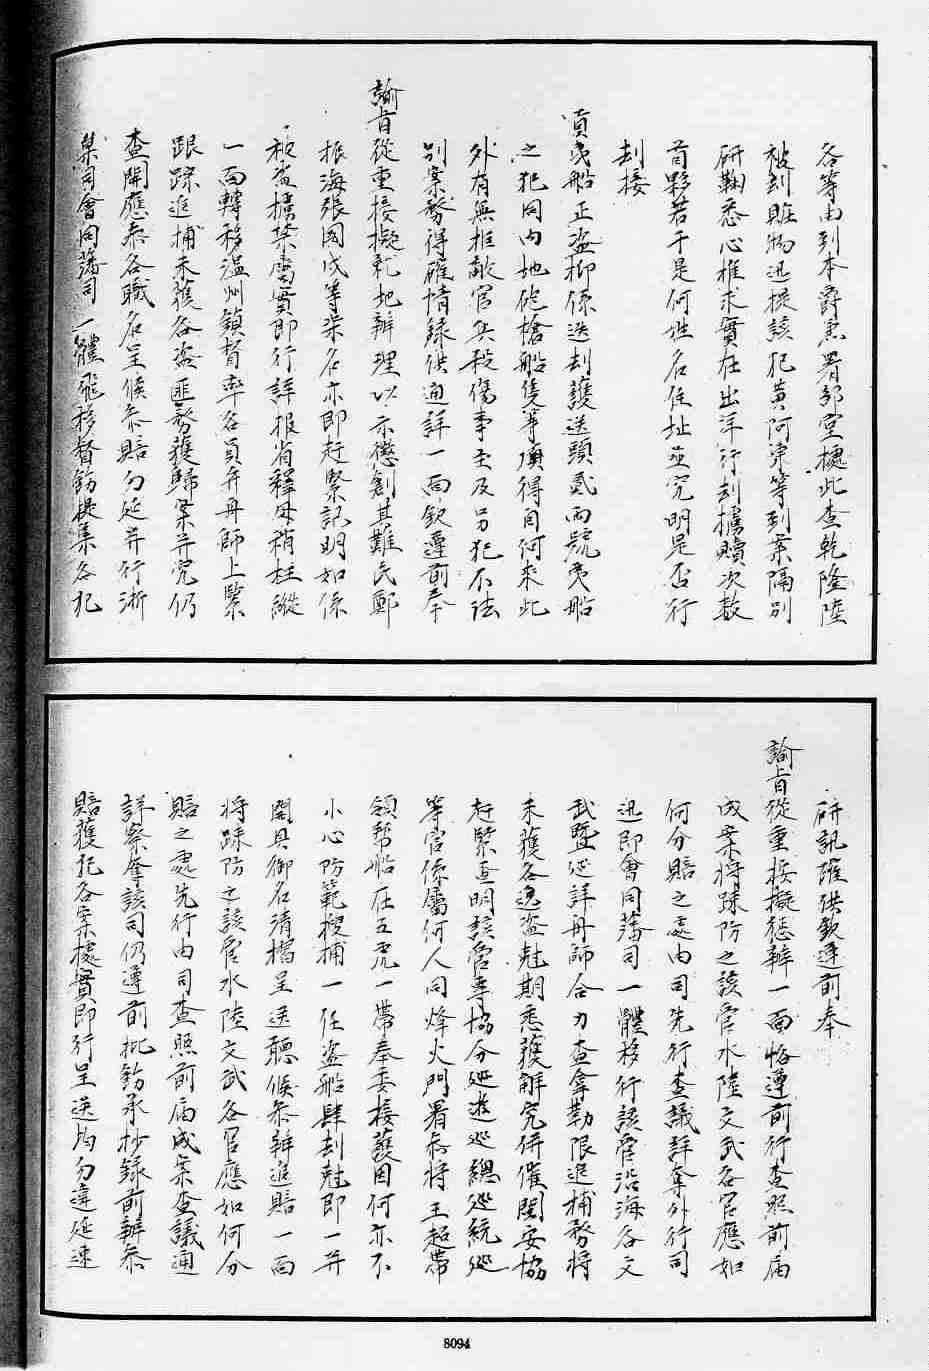 各等由到本爵兼署部堂據此查乾隆陸
被刦賍物迅提該犯黃阿宋等到案隔別
研鞫悉心推求實在出洋行刦擄贖次数
首夥若干是何姓名住址並究明是否行
刦接
貢夷船正盜抑係迭刦護送頭貳両號夷船
之犯同內地砲槍船隻等項得自何来此
外有無拒敵官兵殺傷事主及另犯不法
別案務得確情錄供通詳一面欽遵前奉
諭旨從重按擬就地辦理以示懲創其難民鄭
振海張國戊等柒名亦即赶緊訊明如係
被盜擄禁屬實即行詳报省釋毋稍枉縱
一面轉移溫州鎮督率各員弁舟師上緊
跟踪追捕未獲各盜匪務獲歸案并究仍
查開應叅各職名呈候叅賠勿延并行浙
臬司會同藩司一體飛移督飭提集各犯
研訊確供欽遵前奉
諭旨從重按擬懲辦一面恪遵前行查照前届
成案將踈防之該管水陸文武各官應如
何分賠之處由司先行查議詳奪外行司
迅即會同藩司一體移行該管沿海各文
武暨巡詳舟師合力查拿勒限追捕務將
未獲各逸盜尅期悉獲解究併催閩安協
赶緊查明該營專協分巡遊巡總巡統巡
等官係屬何人同烽火門署叅將王超帶
領幇船在五虎一帶奉委接護因何亦不
小心防範搜捕一任盜船肆刦尅即一并
開具銜名清摺呈送聽候叅辦追賠一面
將踈防之該管水陸文武各官應如何分
賠之處先行由司查照前届成案查議通
詳察奪該司仍遵前批飭承抄錄前辦叅
賠獲犯各案據實即行呈送均勿違延速
8094